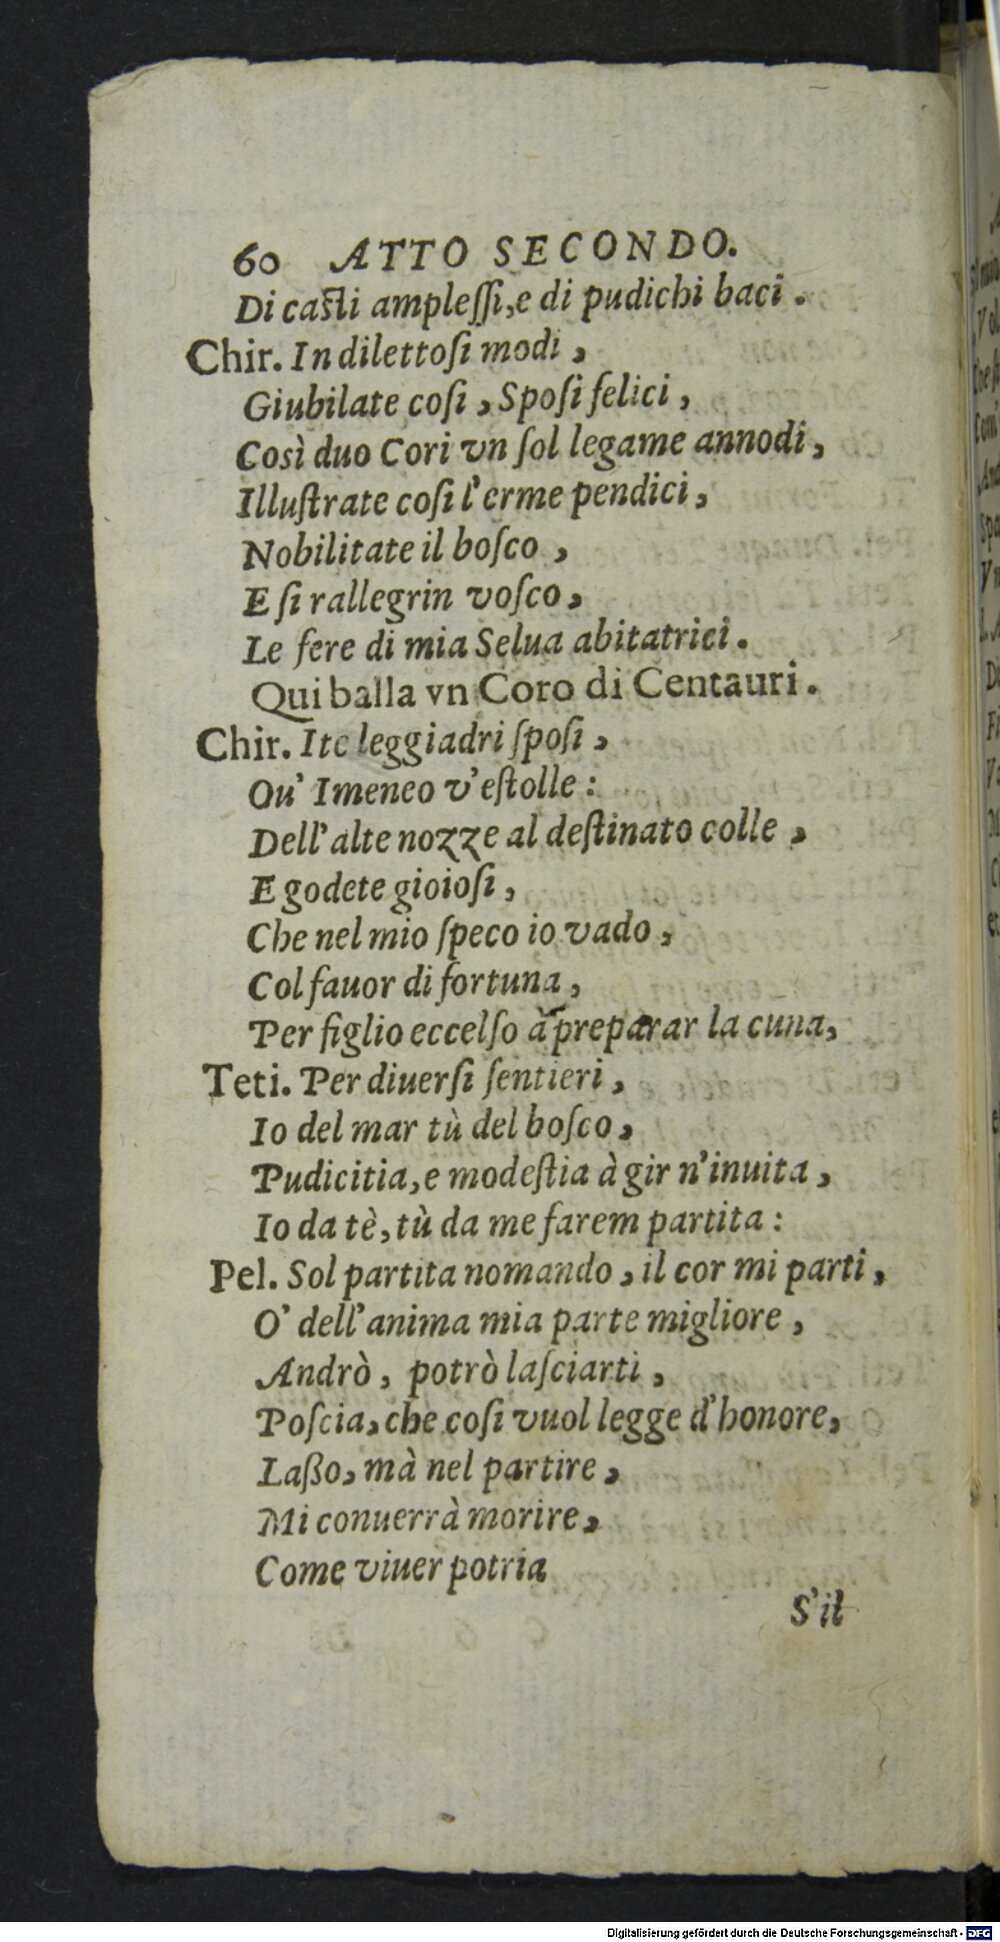 60 ATTO SECONDO.
Di caſti ampleſſi, e di pudichi baci.
Chir. In dilettoſi modi,
Giubilate coſi, Spoſi felici,
Così duo Cori vn ſol legame annodi,
Illuſtrate coſi l'erme pendici,
Nobilitate il boſco,
E ſi rallegrin voſco,
Le fere di mia Selua abitatrici.
Qui balla vn Coro di Centauri.
Chir. Ite leggiadri ſpoſi,
Ou' Imeneo v'eſtolle:
Dell'alte nozze al deſtinato colle,
E godete gioioſi,
Che nel mio ſpeco io vado,
Col fauor di fortuna,
Per figlio eccelſo à preparar la cuna,
Teti. Per diuerſi ſentieri,
Io del mar tù del boſco,
Pudicitia, e modeſtia à gir n'inuita,
Io da tè, tù da me farem partita:
Pel. Sol partita nomando, il cor mi parti,
O' dell'anima mia parte migliore,
Andrò, potrò laſciarti,
Poſcia, che coſi vuol legge d'honore,
Laßo, mà nel partire,
Mi conuerrà morire,
Come viuer potria
S'il
Digitalisierung gefördert durch die Deutsche Forschungsgemeinschaft - DFG